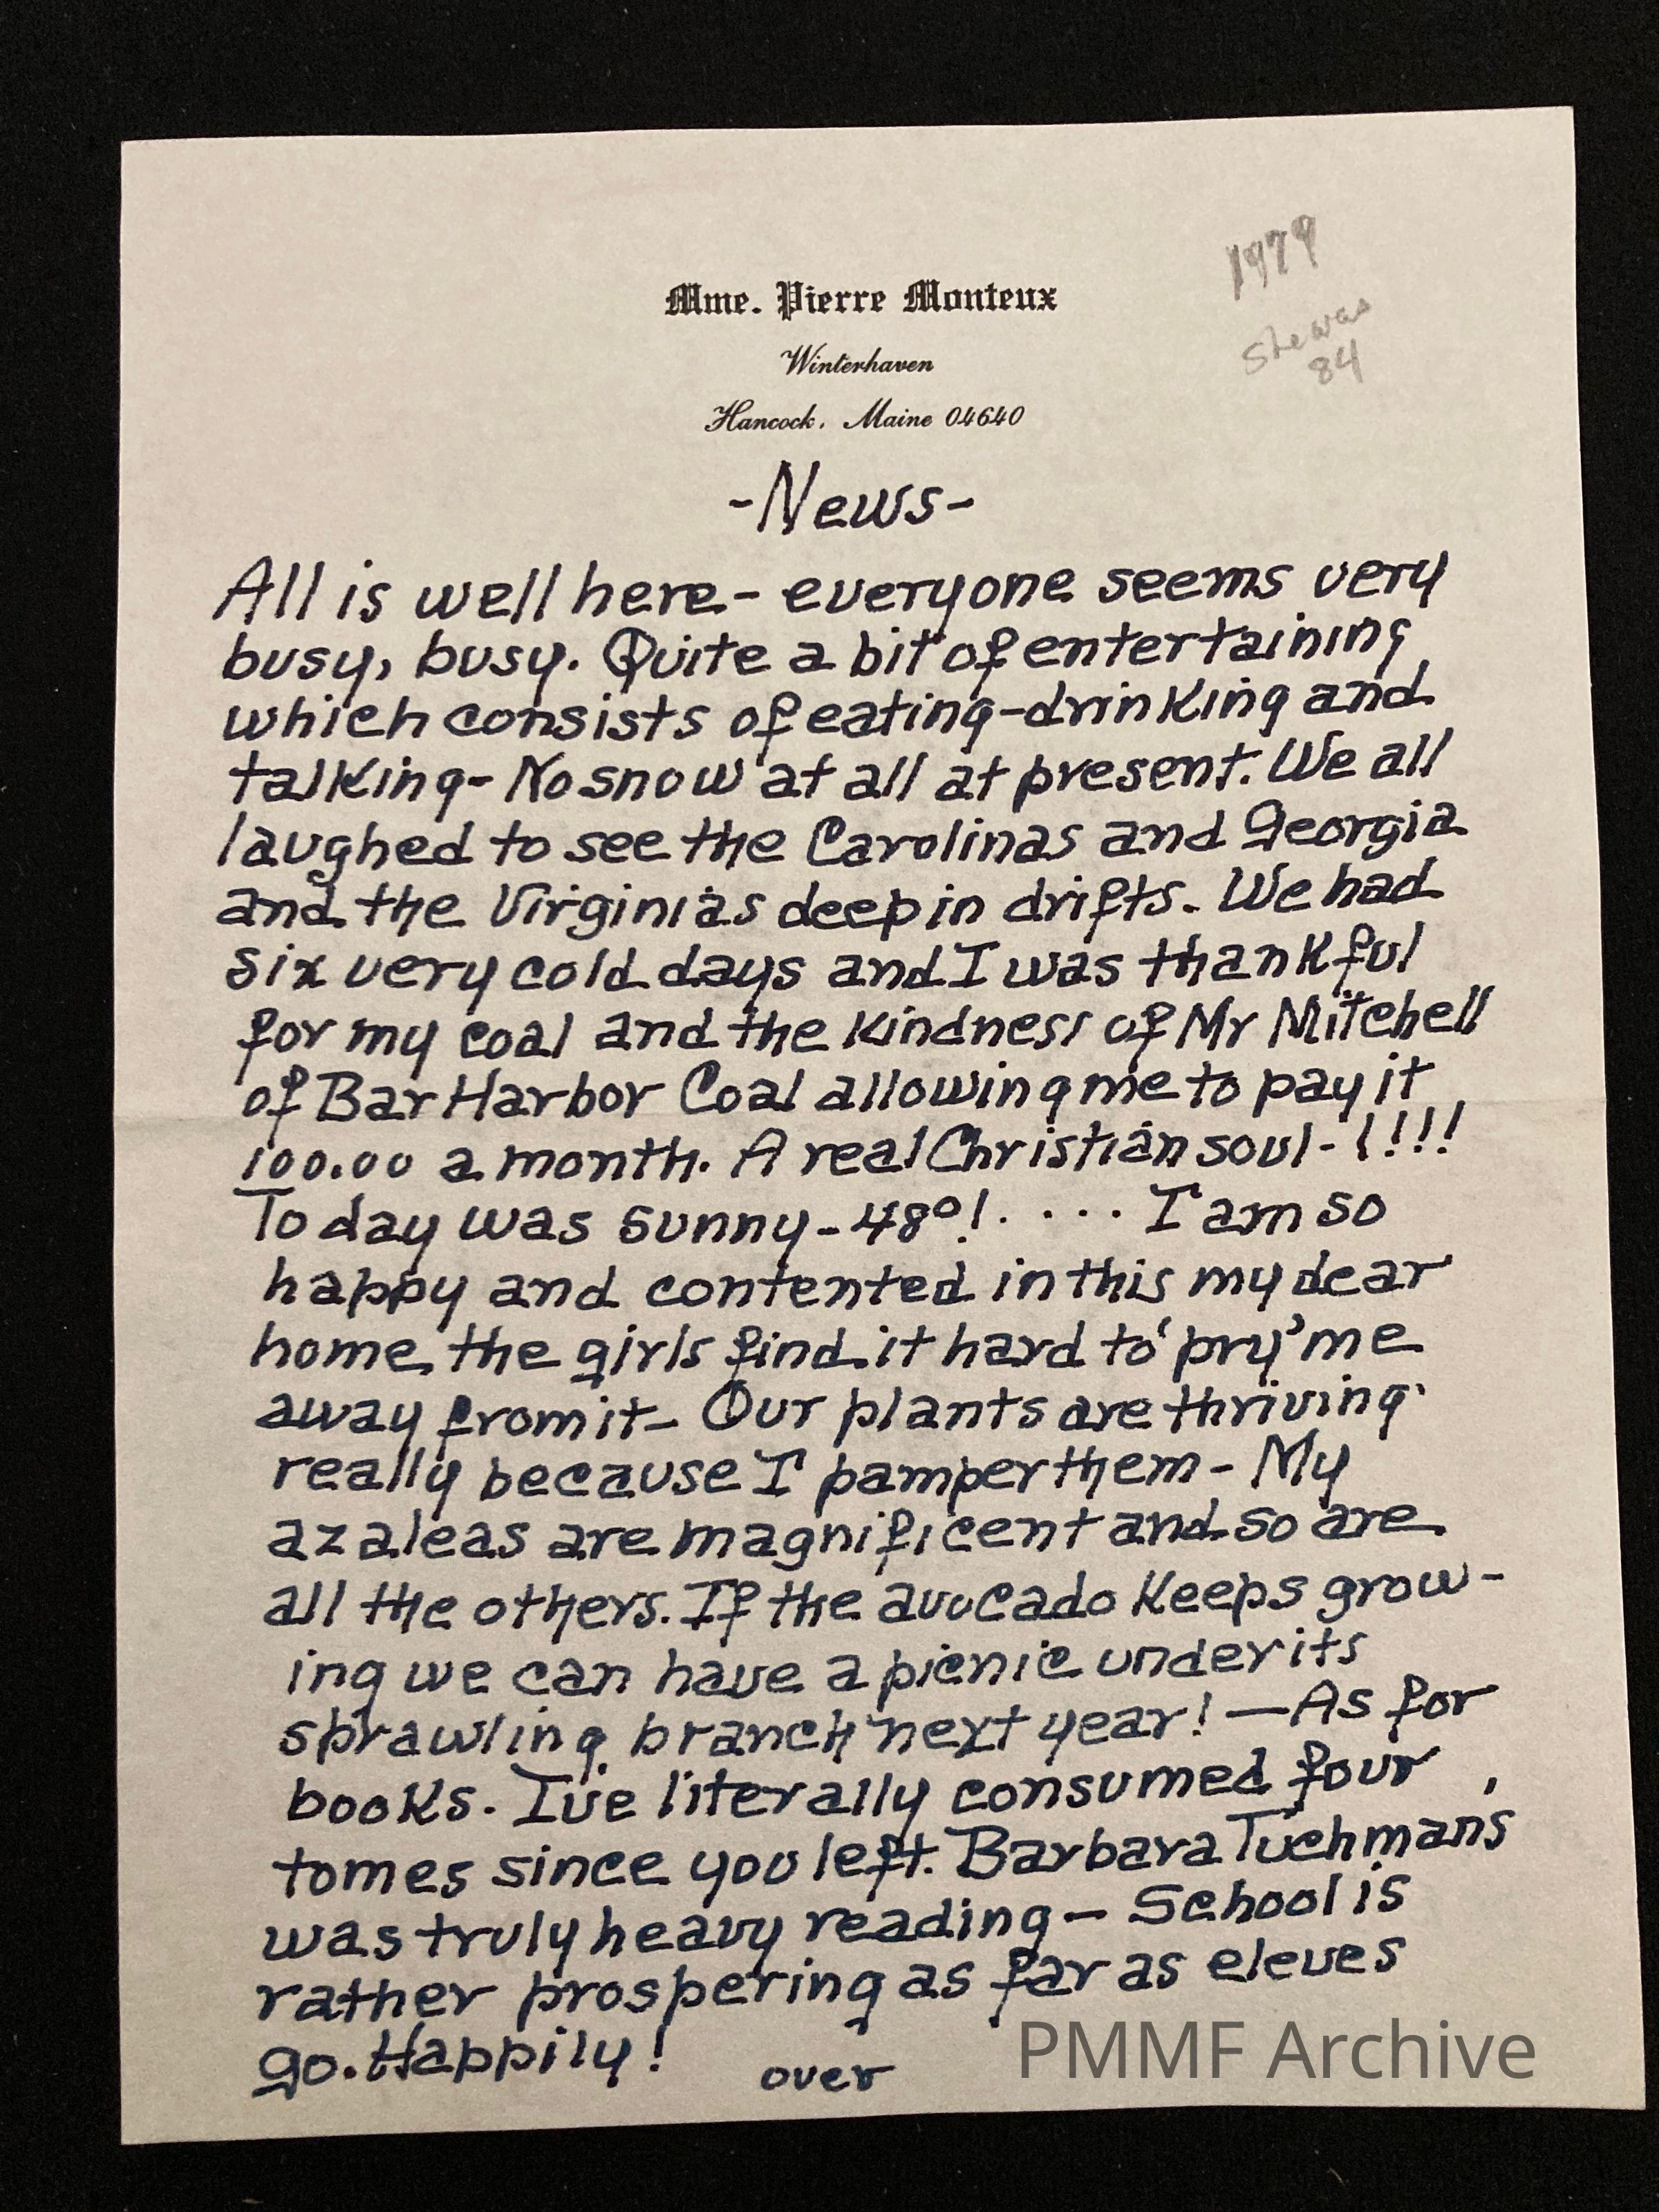 1979
she was
84
Mme. Pierre Monteux
Winterhaven
Hancock, Maine 04640
-News-
All is well here- everyone seems very
busy, busy. Quite a bit of entertaining
which consists of eating-drinking and
talking- No snow at all at present. We all
laughed to see the Carolinas and Georgia
and the Virginias deep in drifts. We had
six very cold days and I was thankful
for my coal and the kindness of Mr Mitchell
of Bar Harbor Coal allowing me to pay it
100.00 a month. A real Christian soul-!!!!
Today was sunny-48°!.... I am so
happy and contented in this my dear
home, the girls find it hard to 'pry' me
away from it- Our plants are thriving
really because I pamper them- My
azaleas are magnificent and so are
all the others. If the avocado keeps grow-
ing we can have a picnic under its
sprawling branch next year! —As for
books. I've literally consumed four
tomes since you left. Barbara Tuchman's
was truly heavy reading— School is
rather prospering as far as eleves
go. Happily!
over
PMMF Archive